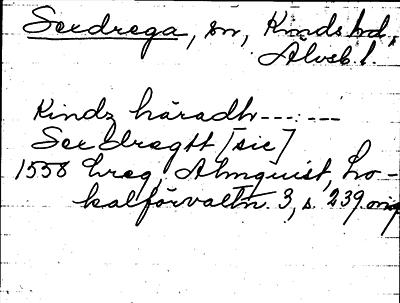 Sexdrega, sn, Kinds hd,
Älvsb. l.
Kindz häradh -------
Sexdregtt [sic]
1558 Ereg, Almquist, Lo-
kalförvaltn. 3, s. 239 orig